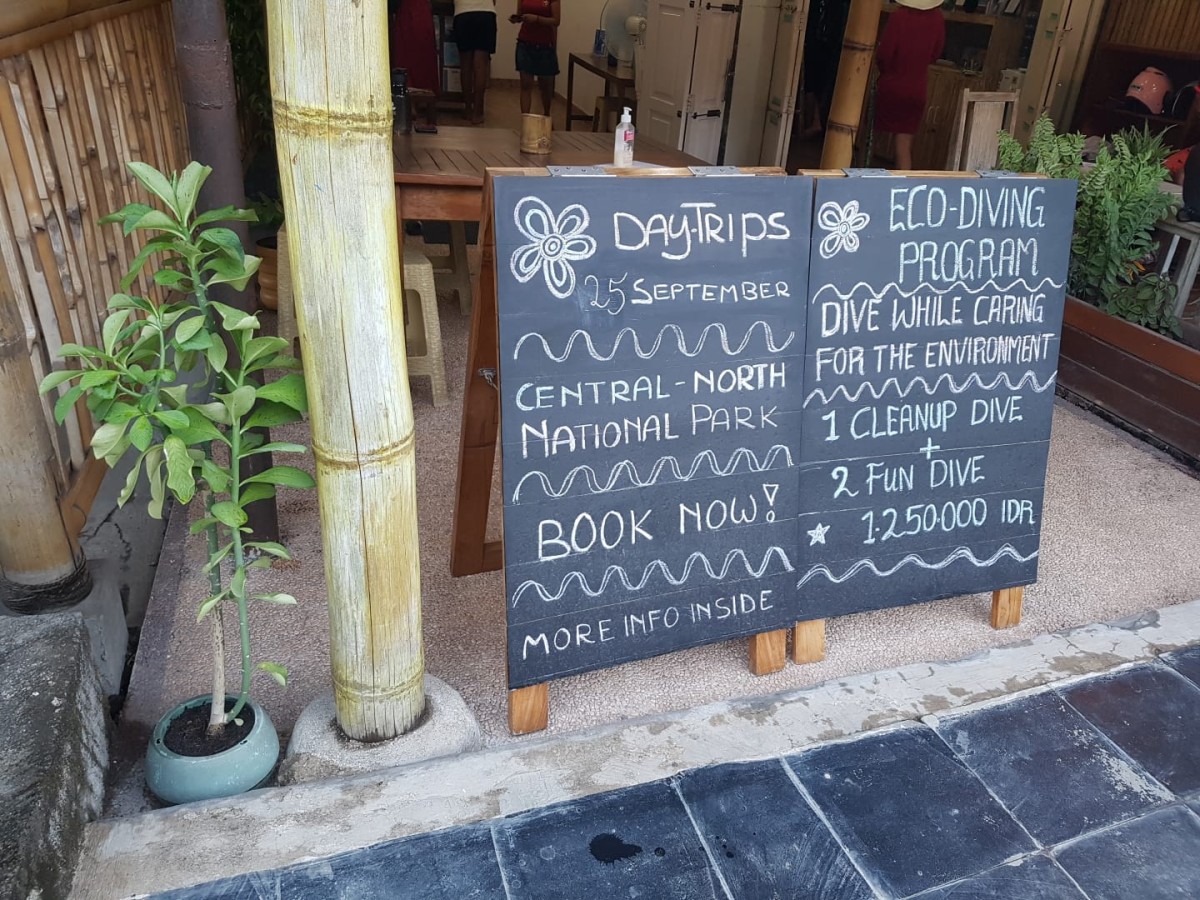 DAY-TRIPS
25 SEPTEMBER
CENTRAL-NORTH
NATIONAL PARK
BOOK NOW!
MORE INFO INSIDE
ECO-DIVING
PROGRAM
DIVE WHILE CARING
FOR THE ENVIRONMENT
1 CLEANUP DIVE
+
2 FUN DIVE
1.250.000 IDR